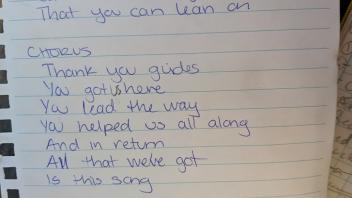 That you can lean on
CHORUS
Thank you guides
You got us here
You lead the way
You helped us all along
And in return
All that we've got
Is this song